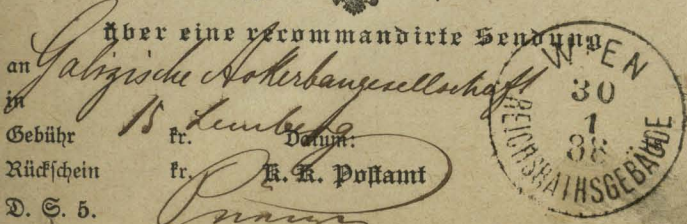 über eine recommandirte Sendung
an Galizische Ackerbaugesellschaft
in Lemberg
Gebühr 15 kr. Datum:
Rückschein kr. K. K. Postamt
D. S. 5.
WIEN
30
1
88
REICHSRATHSGEBÄUDE